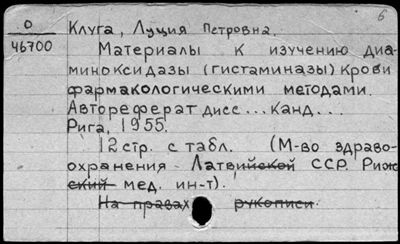 6
О
46700
Клуга, Луция Петровна.
Материалы к изучению диа-
миноксидазы (гистаминазы) крови
фармакологическими методами.
Автореферат дисс... канд...
Рига, 1955.
12 стр. с табл. (М-во здраво-
охранения Латвийской ССР. Риж
ский мед. ин-т).
На правах рукописи.